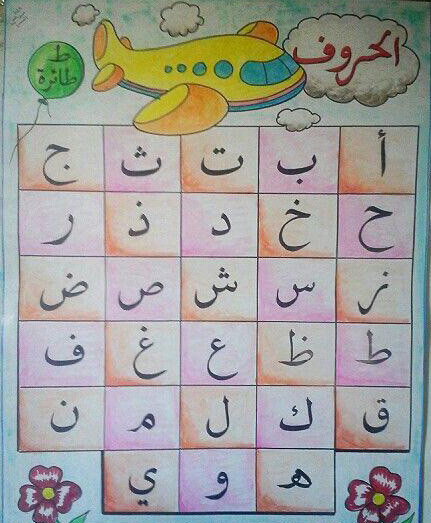 الحروف
ط
طائرة
أ ب ت ث ج
ح خ د ذ ر
ز س ش ص ض
ط ظ ع غ ف
ق ك ل م ن
هـ و ي